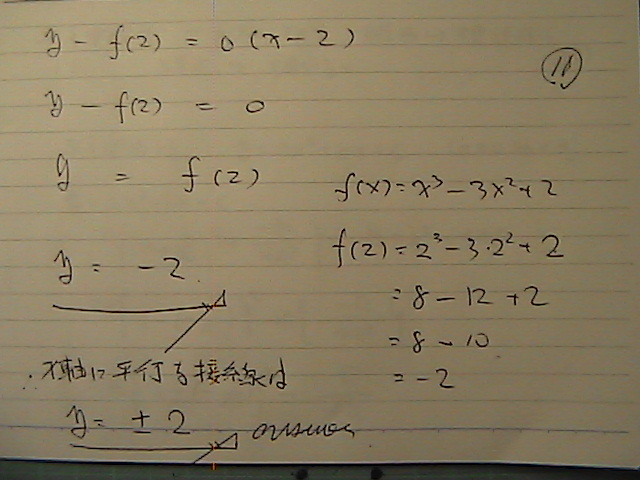 y - f(2) = 0 (x - 2)
⑪
y - f(2) = 0
y = f(2)
f(x) = x³ - 3x² + 2
f(2) = 2³ - 3・2² + 2
y = -2
= 8 - 12 + 2
= 8 - 10
∴ x軸に平行な接線は
= -2
y = ± 2 answer